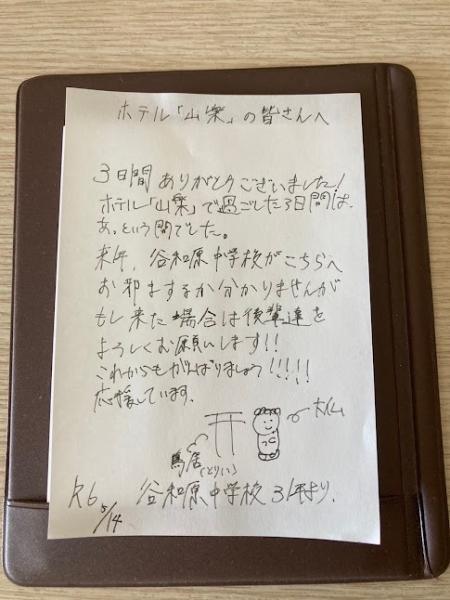 ホテル「山楽」の皆さんへ
3日間ありがとうございました!
ホテル「山楽」で過ごした3日間は、
あっという間でした。
来年、谷和原中学校がこちらへ
お邪まするか分かりませんが
もし来た場合は後輩達を
よろしくお願いします!!
これからもがんばりましょう!!!!!
応援しています。
大仏
鳥居(とりい)
R6 5/14 谷和原中学校 3年より.